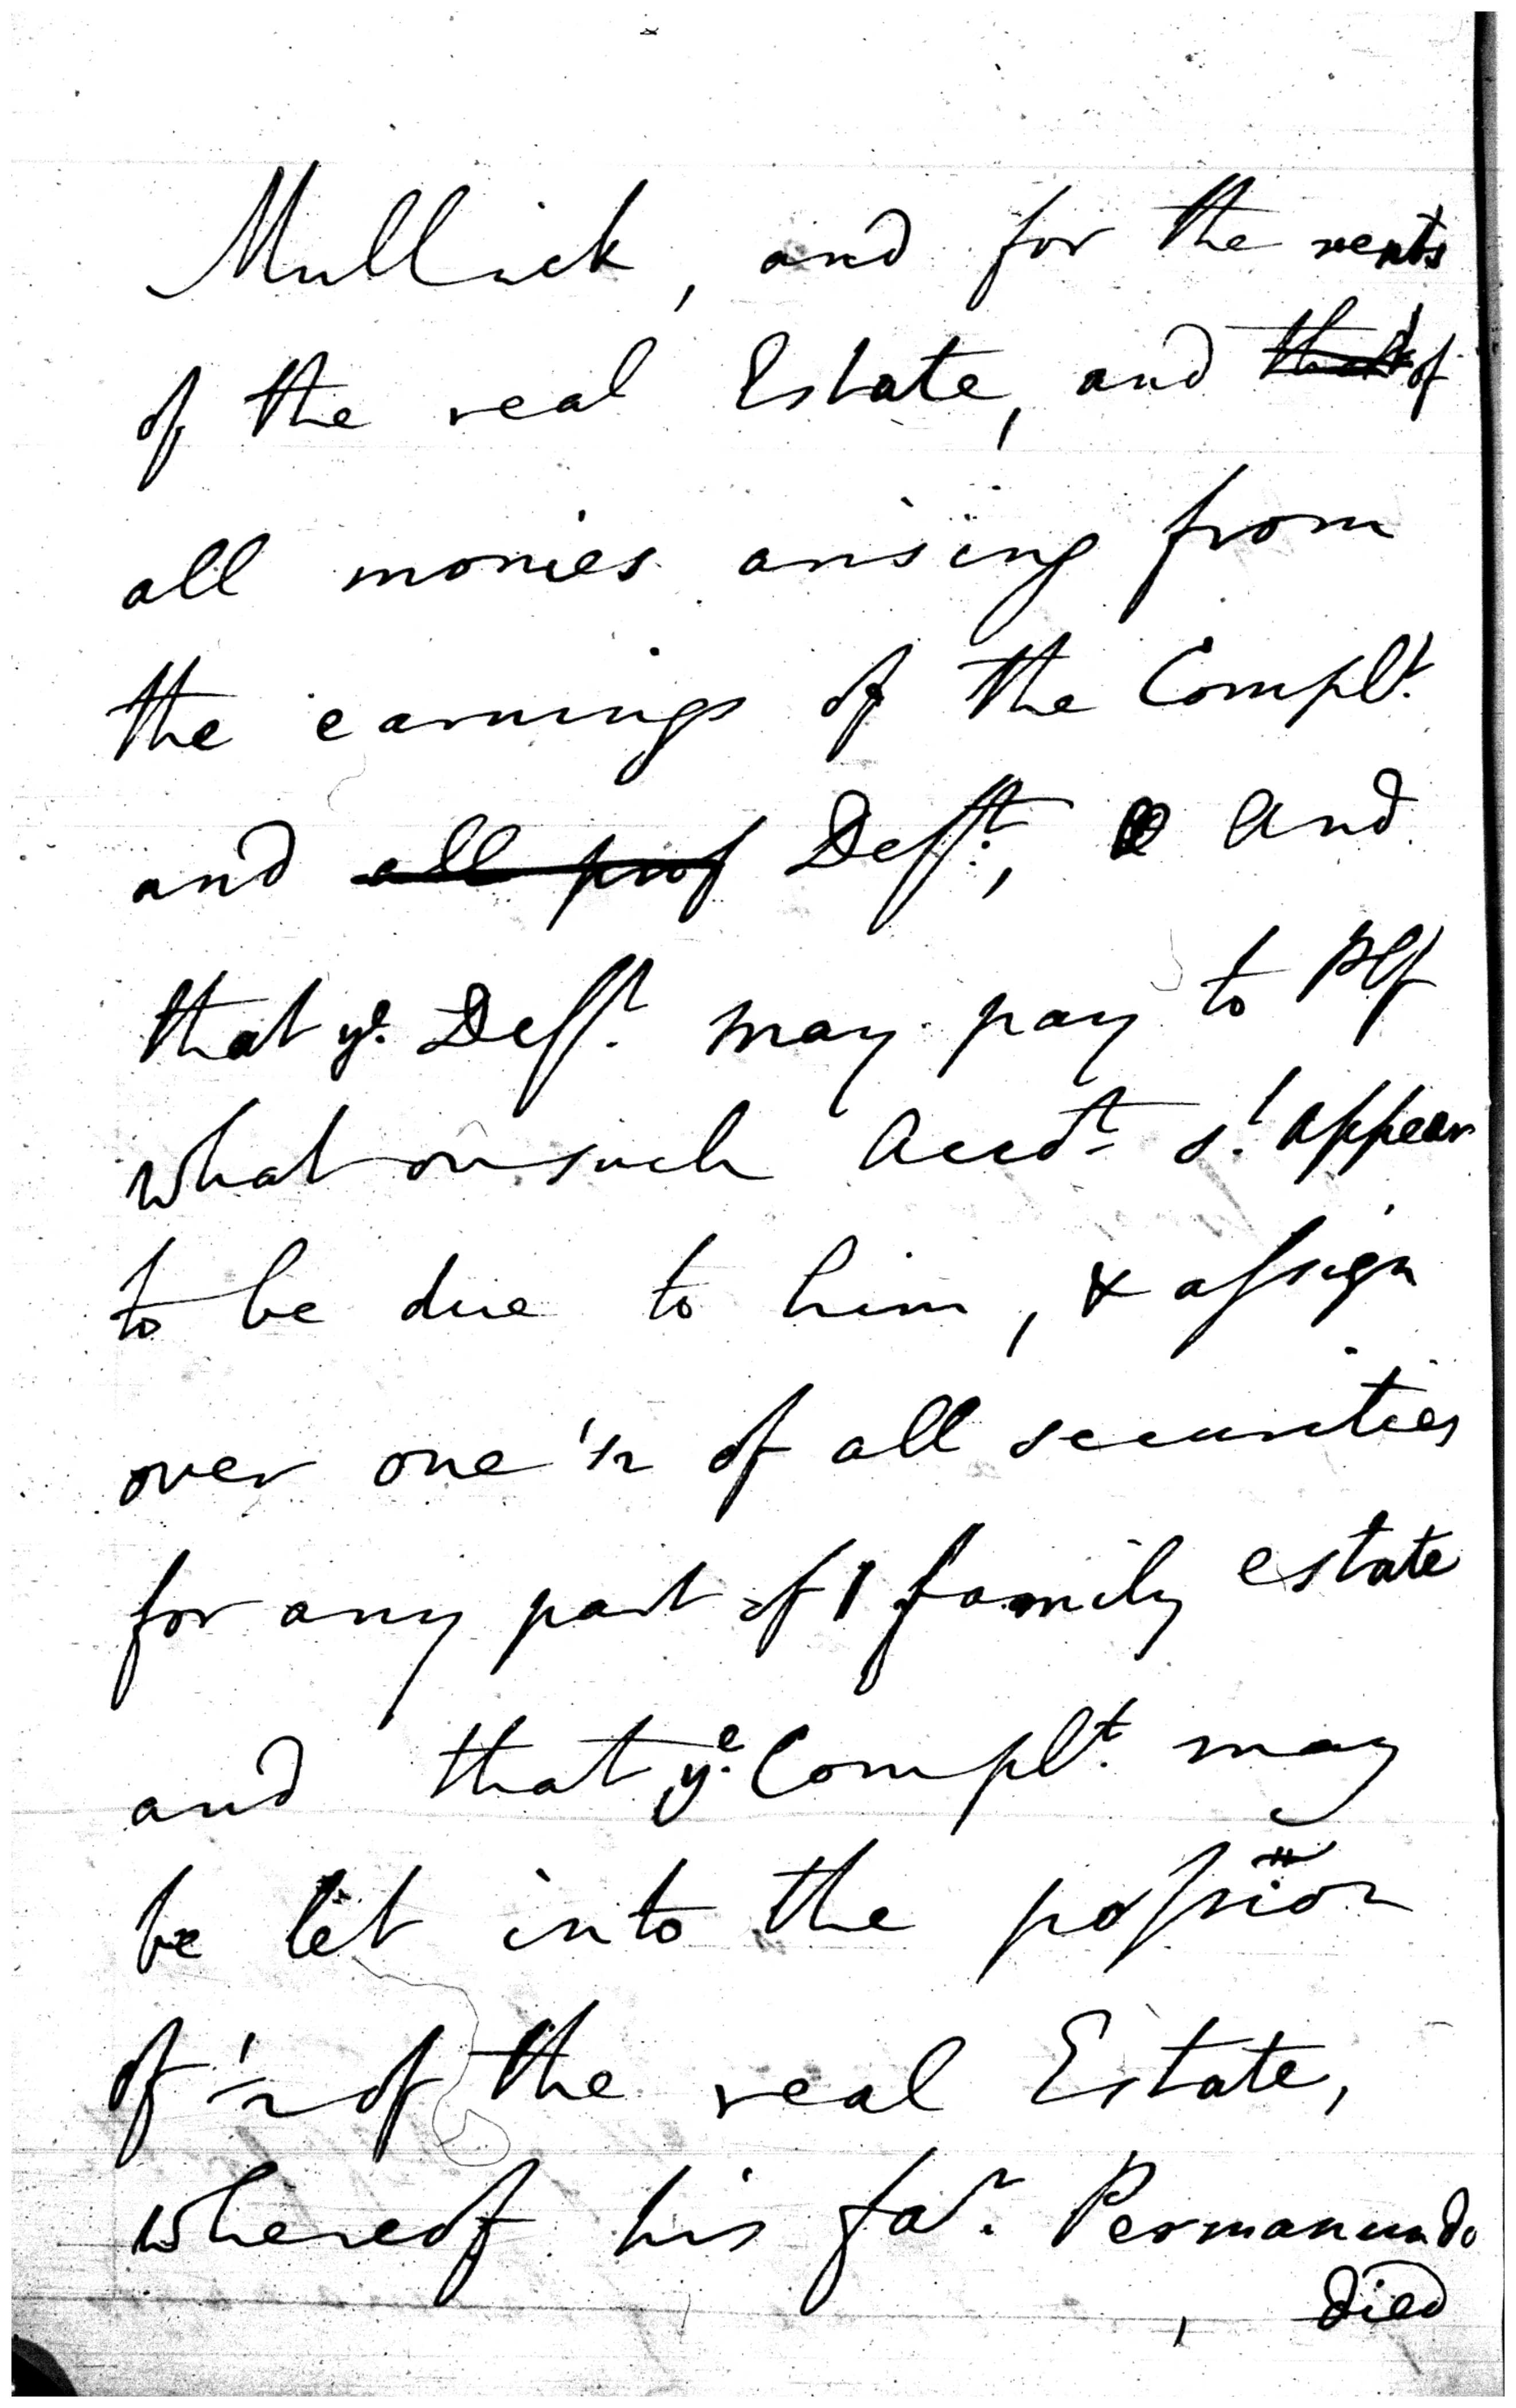 Mullick, and for the rents
of the real Estate, and that of
all monies arising from
the earnings of the Complt.
and all prof Deft., and
that ye. Deft. may pay to Plf
what on such Accot. sd. appear
to be due to him, & assign
over one ½ of all securities
for any part of family estate
and that ye. Complt. may
be let into the possion
of ½ of the real Estate,
whereof his far. Permanundo
died